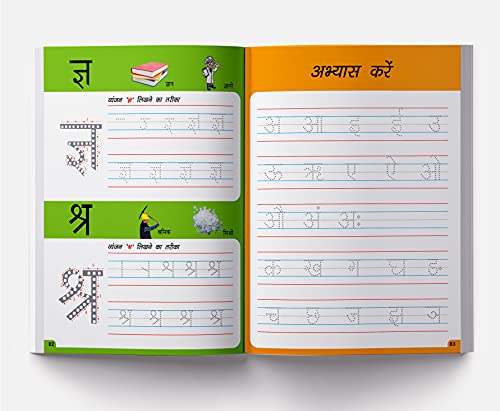 ज्ञ
ज्ञान
ज्ञानी
व्यंजन 'ज्ञ' लिखने का तरीका
ज्ञ
ज्ञ ज्ञ ज्ञ ज्ञ
श्र
श्रमिक
मिश्री
व्यंजन 'श्र' लिखने का तरीका
श्र
श्र श्र श्र श्र
82
अभ्यास करें
अ आ इ ई उ
ऊ ऋ ए ऐ ओ
औ अं अः
क ख ग घ ङ
च छ ज झ ञ
83